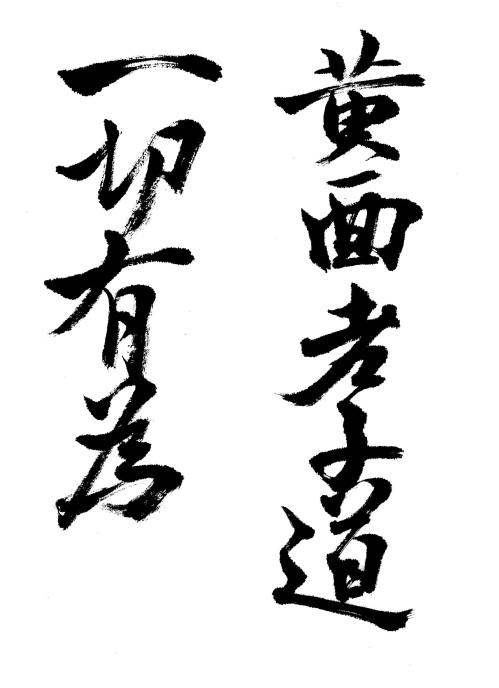 黄面老子道
一切有為